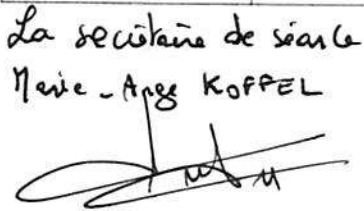 La secrétaire de séance
Marie-Ange KOFFEL